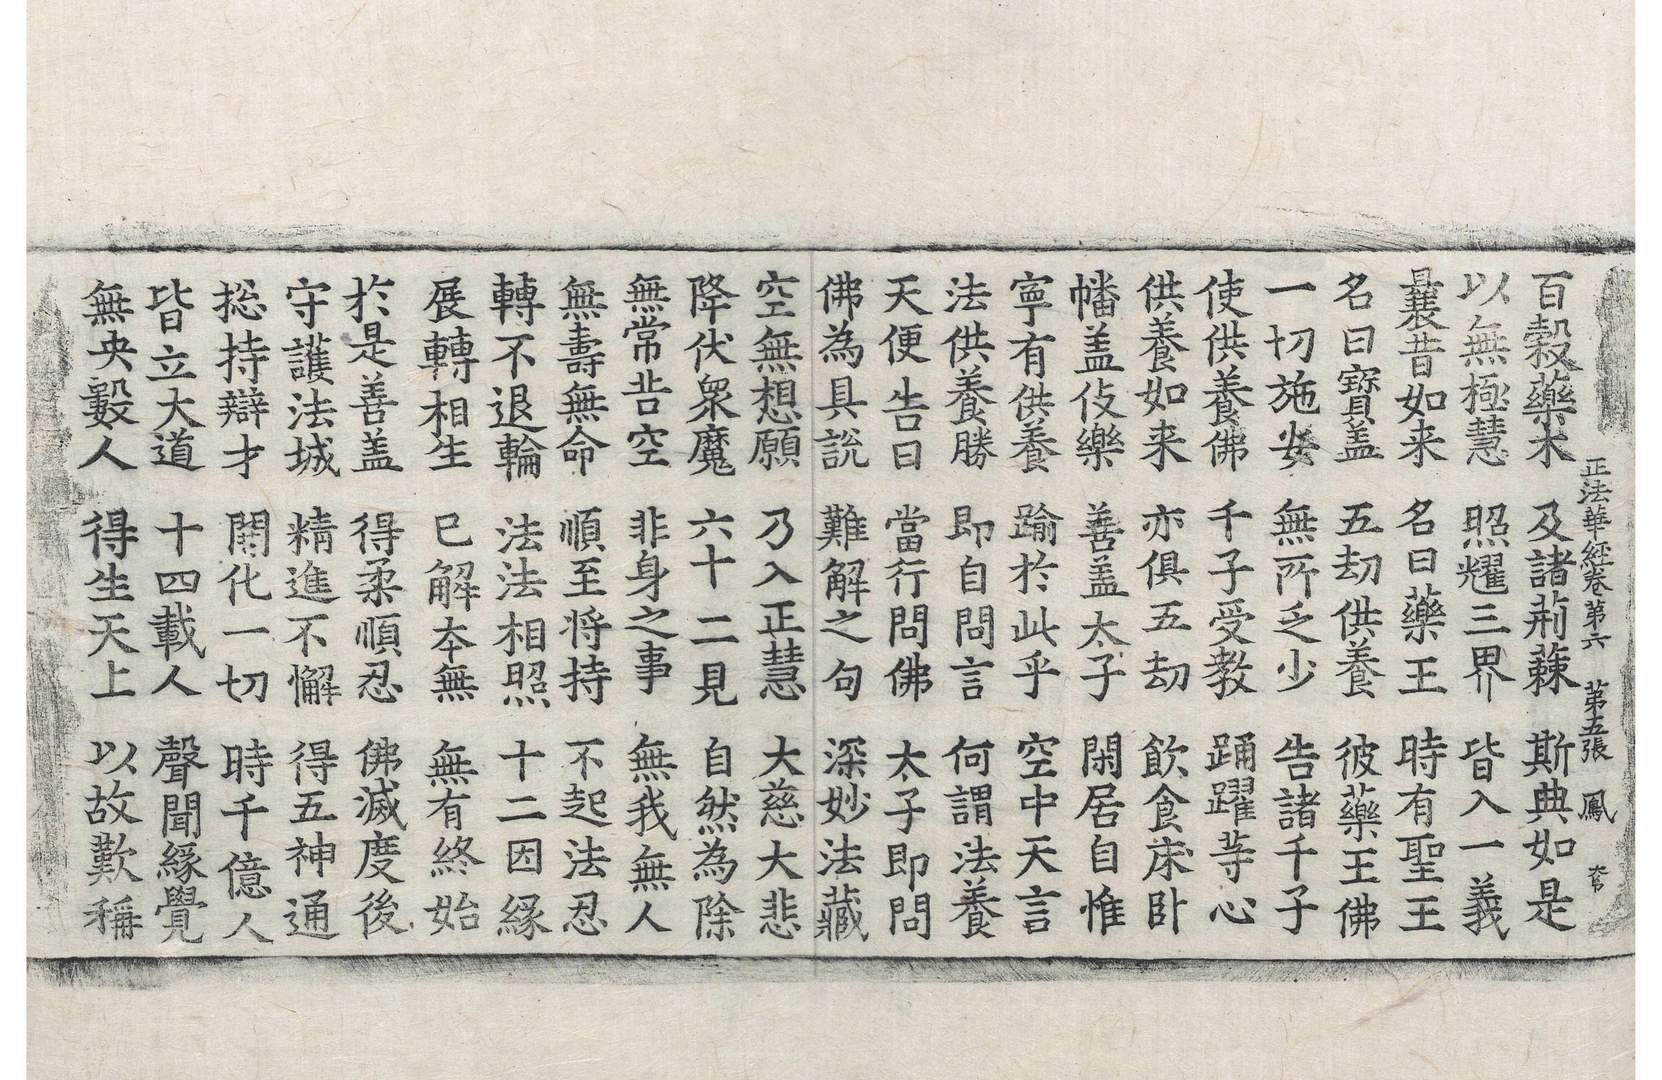 正法華經卷第六 第五張 鳳
百穀藥木 及諸荊蕀 斯典如是
以無極慧 照耀三界 皆入一義
曩昔如来 名曰藥王 時有聖王
名曰寶盖 五劫供養 彼藥王佛
一切施安 無所乏少 告諸千子
使供養佛 千子受教 踊躍等心
供養如来 亦俱五劫 飲食床卧
幡盖伎樂 善盖太子 閑居自惟
寧有供養 踰於此乎 空中天言
法供養勝 即自問言 何謂法養
天便告曰 當行問佛 太子即問
佛為具說 難解之句 深妙法藏
空無想願 乃入正慧 大慈大悲
降伏衆魔 六十二見 自然為除
無常苦空 非身之事 無我無人
無壽無命 順至将持 不起法忍
轉不退輪 法法相照 十二因緣
展轉相生 已解本無 無有終始
於是善盖 得柔順忍 佛滅度後
守護法城 精進不懈 得五神通
揔持辯才 開化一切 時千億人
皆立大道 十四載人 聲聞緣覺
無央數人 得生天上 以故歎稱